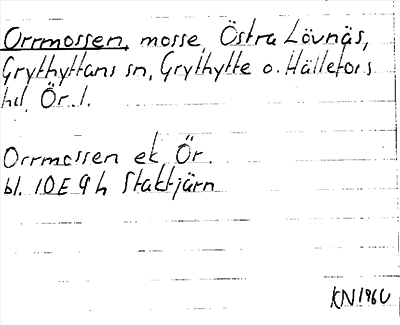 Orrmossen, mosse, Östra Lövnäs,
Grythyttans sn, Grythytte o. Hällefors
hd, Ör. l.
Orrmossen ek, Ör.
bl. 10E 9h Staktjärn
KN1960